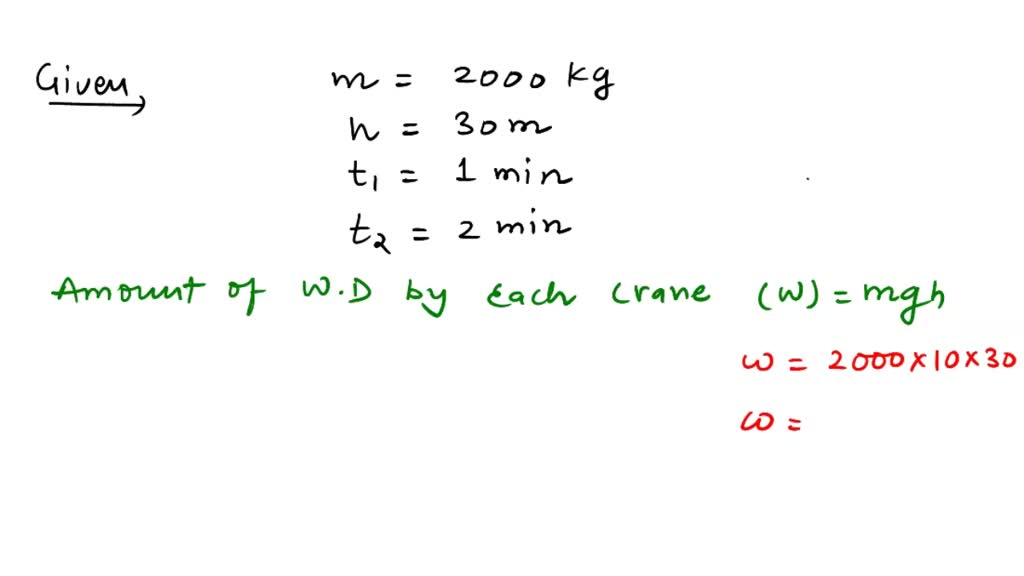 Given
m = 2000 kg
h = 30 m
t₁ = 1 min
t₂ = 2 min
Amount of W.D by each crane (W) = mgh
W = 2000×10×30
W =